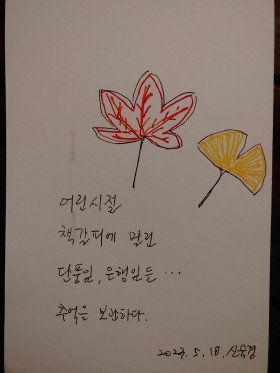 어린시절
책갈피에 말린
단풍잎, 은행잎들 ...
추억은 보관하다.
2023. 5. 18. 신욱경